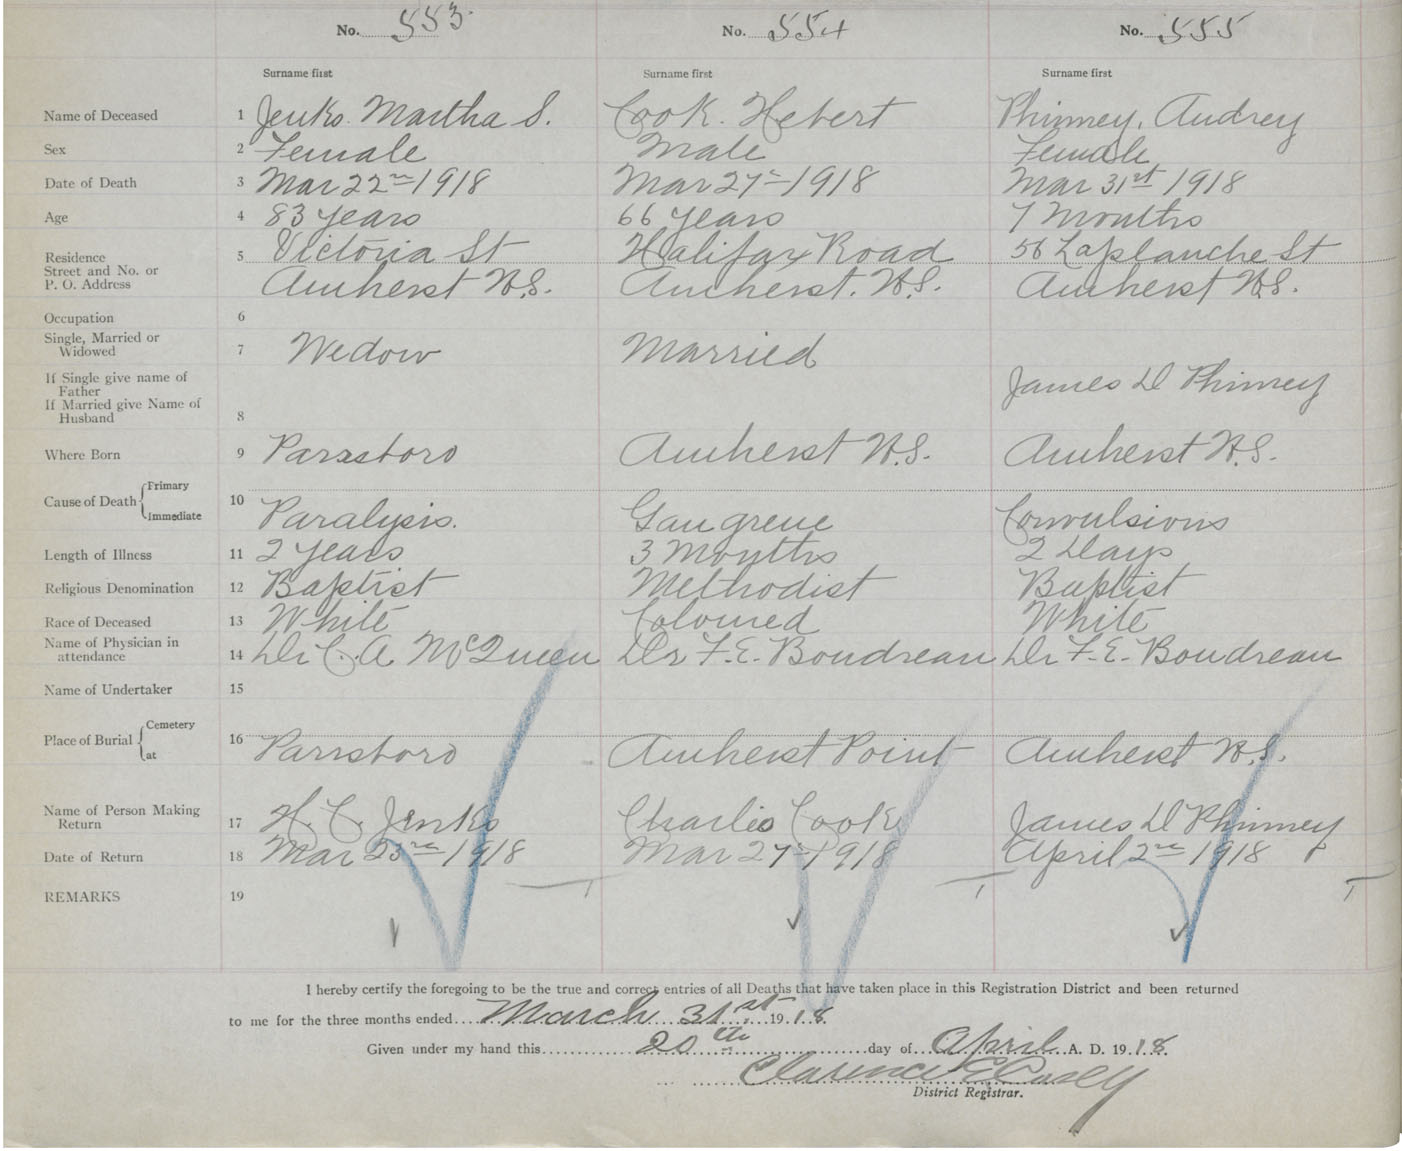 No. 553 No. 554 No. 555
Surname first Surname first Surname first
Name of Deceased 1 Jenks. Martha S. Cook. Hebert Phinney, Audrey
Sex 2 Female Male Female
Date of Death 3 Mar 22nd 1918 Mar 27th 1918 Mar 31st 1918
Age 4 83 years 66 years 7 Months
Residence
Street and No. or
P. O. Address
5 Victoria St Halifax Road 56 Laplanche St
Amherst N.S. Amherst. N.S. Amherst N.S.
Occupation 6
Single, Married or
Widowed
7 Wedow Married
If Single give name of
Father
If Married give Name of
Husband
8 James D Phinney
Where Born 9 Parrsboro Amherst N.S. Amherst N.S.
Cause of Death Primary
Immediate
10 Paralysis. Gangrene Convulsions
Length of Illness 11 2 years 3 Months 2 Days
Religious Denomination 12 Baptist Methodist Baptist
Race of Deceased 13 White Coloured White
Name of Physician in
attendance
14 Dr C. A. McQueen Dr F. E. Boudreau Dr F. E. Boudreau
Name of Undertaker 15
Place of Burial Cemetery
at
16 Parrsboro Amherst Point Amherst N.S.
Name of Person Making
Return
17 H. C. Jenks Charlie Cook James D Phinney
Date of Return 18 Mar 23rd 1918 Mar 27th 1918 April 2nd 1918
REMARKS 19
I hereby certify the foregoing to be the true and correct entries of all Deaths that have taken place in this Registration District and been returned
to me for the three months ended March 31st 1918.
Given under my hand this 20th day of April A. D. 1918.
Clarence E Casey
District Registrar.